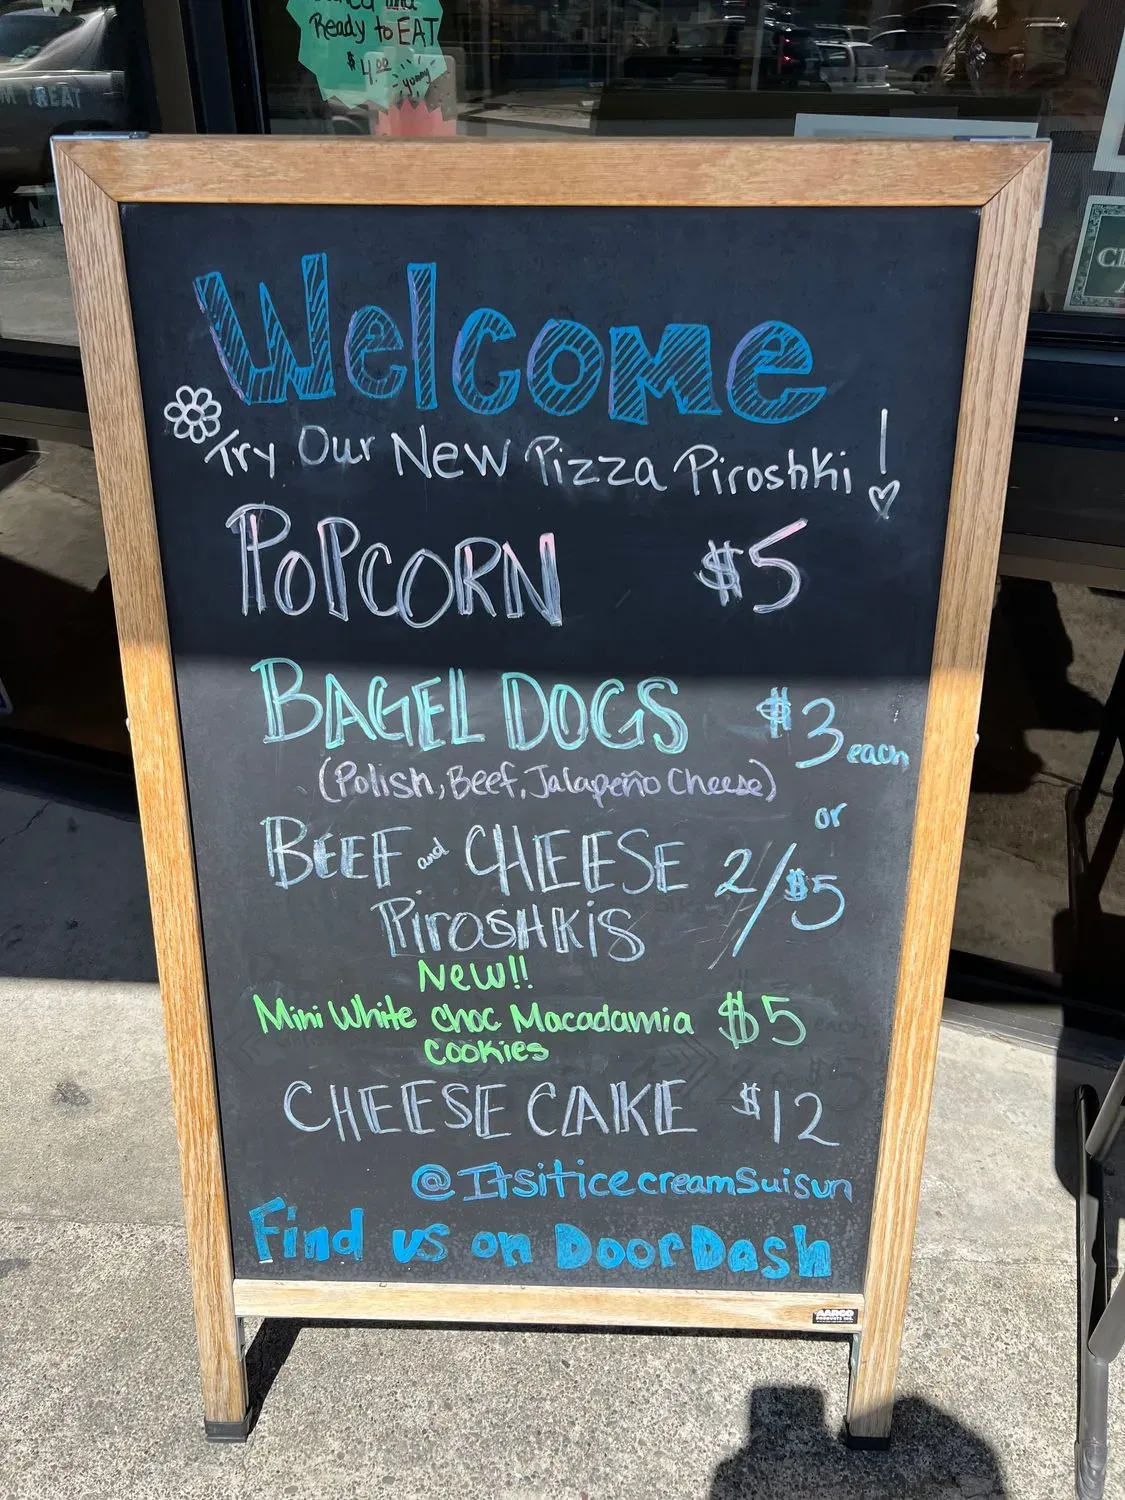 Ready to EAT
$4.00
yummy
Welcome
Try Our New Pizza Piroshki!
POPCORN $5
BAGEL DOGS $3 each
(Polish, Beef, Jalapeño Cheese)
or
BEEF and CHEESE 2/$5
PiROSHKiS
New!!
Mini White Choc Macadamia $5
Cookies
CHEESE CAKE $12
@ItsiticecreamSuisun
Find us on DoorDash
AARCO
PRODUCTS INC.